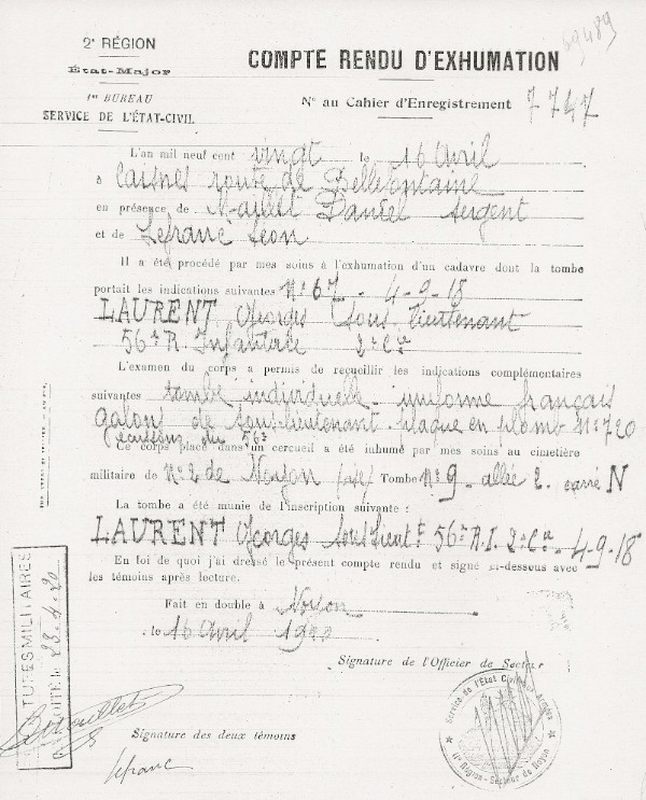 69489
2e RÉGION
État-Major
1er BUREAU
SERVICE DE L'ÉTAT-CIVIL
COMPTE RENDU D'EXHUMATION
No au Cahier d'Enregistrement 7747
L'an mil neuf cent vingt le 16 Avril
à Caisnes route de Bellefontaine
en présence de Daniel Sergent
et de Lefranc Léon
Il a été procédé par mes soins à l'exhumation d'un cadavre dont la tombe
portait les indications suivantes No 67 - 4-9-18
LAURENT Georges Sous-Lieutenant
56e R. Infanterie 2e Cie
L'examen du corps a permis de recueillir les indications complémentaires
suivantes tombe individuelle - uniforme français
galons de sous-lieutenant - plaque en plomb No 720
écussons du 56e
Ce corps placé dans un cercueil a été inhumé par mes soins au cimetière
militaire de No 2 de Noyon Tombe No 9 - allée 2. carré N
La tombe a été munie de l'inscription suivante :
LAURENT Georges Sous Lieut t 56e R.I. 2e Cie - 4-9-18
En foi de quoi j'ai dressé le présent compte rendu et signé ci-dessous avec
les témoins après lecture.
Fait en double à Noyon
le 16 Avril 1920
Signature de l'Officier de Secteur
Service de l'Etat Civil aux Armées
Région - Secteur de Noyon
TURES MILITAIRES
23-4-20
Signature des deux témoins
Lefranc